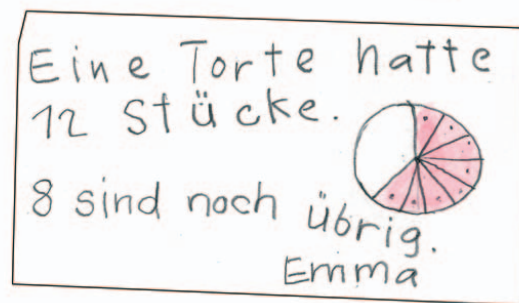 Eine Torte hatte
12 Stücke.
8 sind noch übrig.
Emma